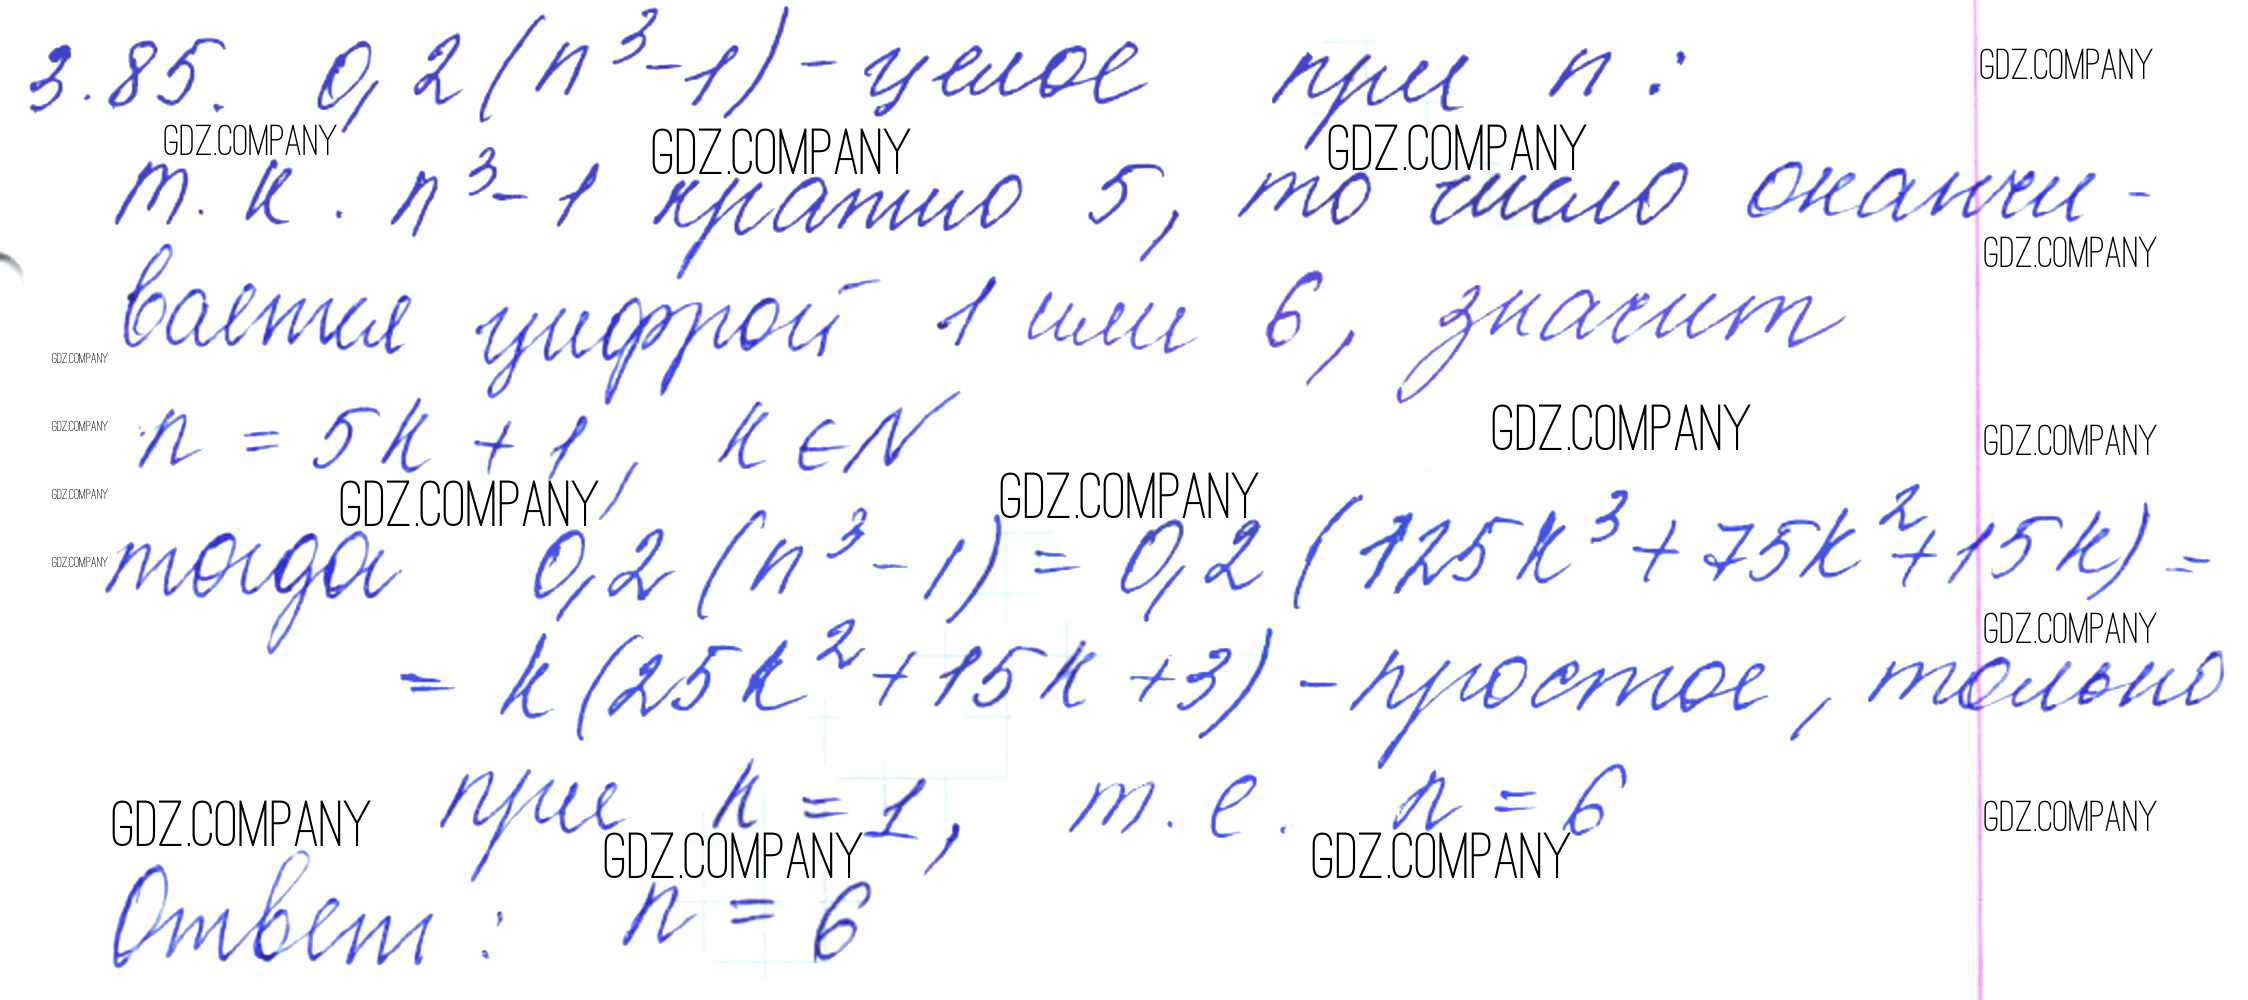 3.85. 0,2(n³-1) - целое при n:
GDZ.COMPANY
GDZ.COMPANY GDZ.COMPANY GDZ.COMPANY
т.к. n³-1 кратно 5, то число оканчи-
GDZ.COMPANY
вается цифрой 1 или 6, значит
GDZ.COMPANY
n = 5k + 1, k ∈ N
GDZ.COMPANY GDZ.COMPANY GDZ.COMPANY
GDZ.COMPANY GDZ.COMPANY GDZ.COMPANY
тогда 0,2(n³-1) = 0,2(125k³+75k²+15k) =
GDZ.COMPANY
GDZ.COMPANY
= k(25k²+15k+3) - простое, только
при k = 1, т.е. n = 6
GDZ.COMPANY GDZ.COMPANY
GDZ.COMPANY GDZ.COMPANY
Ответ: n = 6